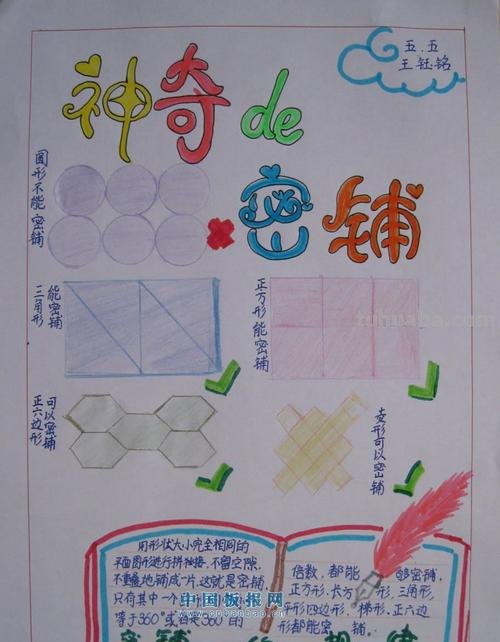 五.五
王钰铭
神奇de
密铺
圆形不能密铺
三角形
能密铺
正方形能密铺
正六边形
可以密铺
变形可以密铺
tuhuajia.com
用形状大小完全相同的
平面图形进行拼接,不留空隙,
不重叠地铺成一片,这就是密铺
只有其中一个
等于360°或者是360°的
倍数,都能够密铺,
正方形,长方形,三角形,
形四边形,梯形,正六边
形都能密铺
中国板报网